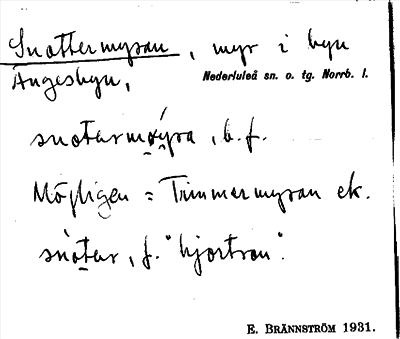 Snottermyran, myr i byn
Ängesbyn,
Nederluleå sn. o. tg. Norrb. l.
snotermo̯ýra, b. f.
Möjligen = Timmermyran ek.
snò̱ter, f. "hjortron".
E. BRÄNNSTRÖM 1931.